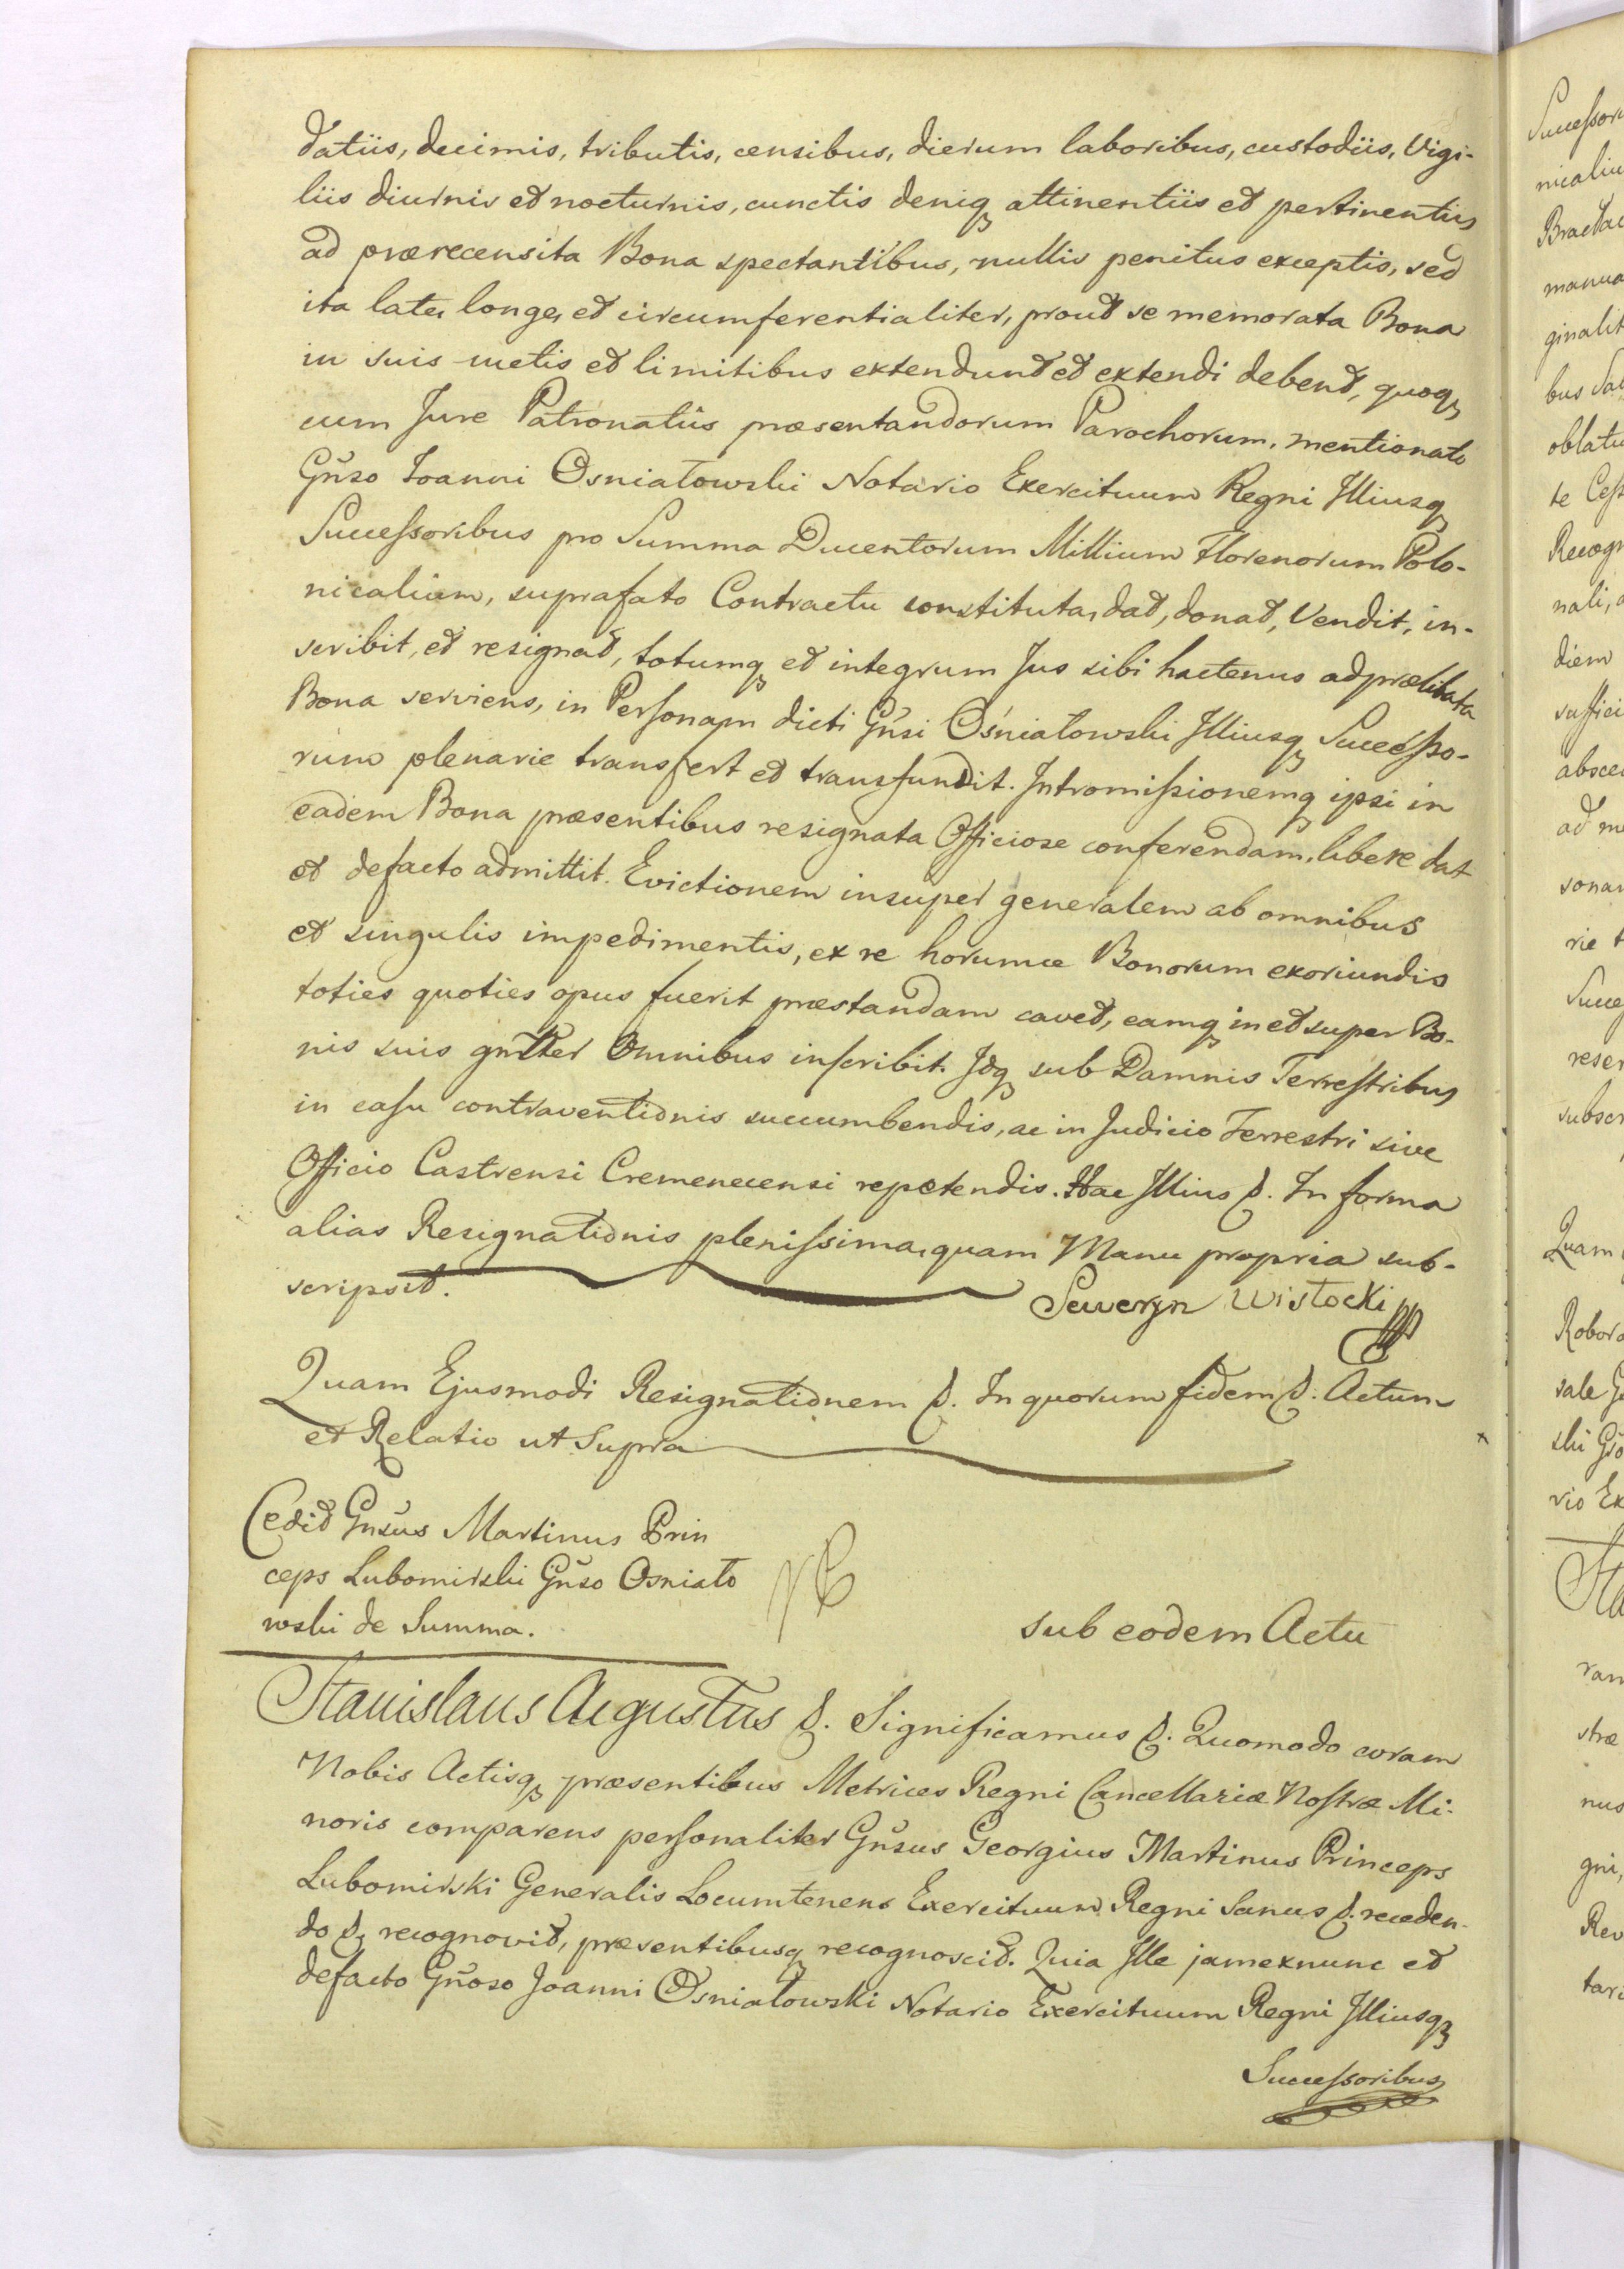 datiis, decimis, tributis, censibus, dierum laboribus, custodiis, Vigi-
liis diurnis et nocturnis, cunctis deniq attinentiis et pertinentiis
ad prærecensita Bona spectantibus, nullis penitus exceptis, sed
ita late, longe, et circumferentialiter, prout se memorata Bona
in suis metis et limitibus extendunt et extendi debent, quoq
cum Jure Patronatûs præsentandorum Parochorum, mentionato
Gnso Joanni Osniałowski Notario Exercituum Regni Illiusq
Successoribus pro Summa Ducentorum Millium Florenorum Polo-
nicalium, suprafato Contractu constituta, dat, donat, Vendit, in-
scribit, et resignat, totumq et integrum Jus sibi hactenus ad prælibata
Bona serviens, in Personam dicti Gnsi Ośniałowski Illiusq Successo-
rum plenarie transfert et transfundit. Intromissionemq ipsi in
eadem Bona præsentibus resignata Officiose conferendam, libere dat
et defacto admittit. Evictionem insuper generalem ab omnibus
et singulis impedimentis, ex re horumce Bonorum exoriundis
toties quoties opus fuerit præstandam cavet, eamq in et super Bo-
nis suis gnlter Omnibus inscribit. Idq sub Damnis Terrestribus
in casu contraventionis succumbendis, ac in Judicio Terrestri sive
Officio Castrensi Cremenecensi repetendis. Hac Illius &. In forma
alias Resignationis plenissima, quam Manu propria sub-
scripsit.
Seweryn Wisłocki mpp
Quam Ejusmodi Resignationem &. In quorum fidem &. Actum
et Relatio ut Supra
Cedit Gnsus Martinus Prin
ceps Lubomirski Gnso Osniało
wski de Summa.
sub eodem Actu
Stanislaus Augustus &. Significamus &. Quomodo coram
Nobis Actisq præsentibus Metrices Regni Cancellariæ Nostræ Mi-
noris comparens personaliter Gnsus Georgius Martinus Princeps
Lubomirski Generalis Locumtenens Exercituum Regni Sanus &. receden-
do &. recognovit, præsentibusq recognoscit. Quia Ille jam exnunc et
defacto Gnoso Joanni Osniałowski Notario Exercituum Regni Illiusq
Successoribus